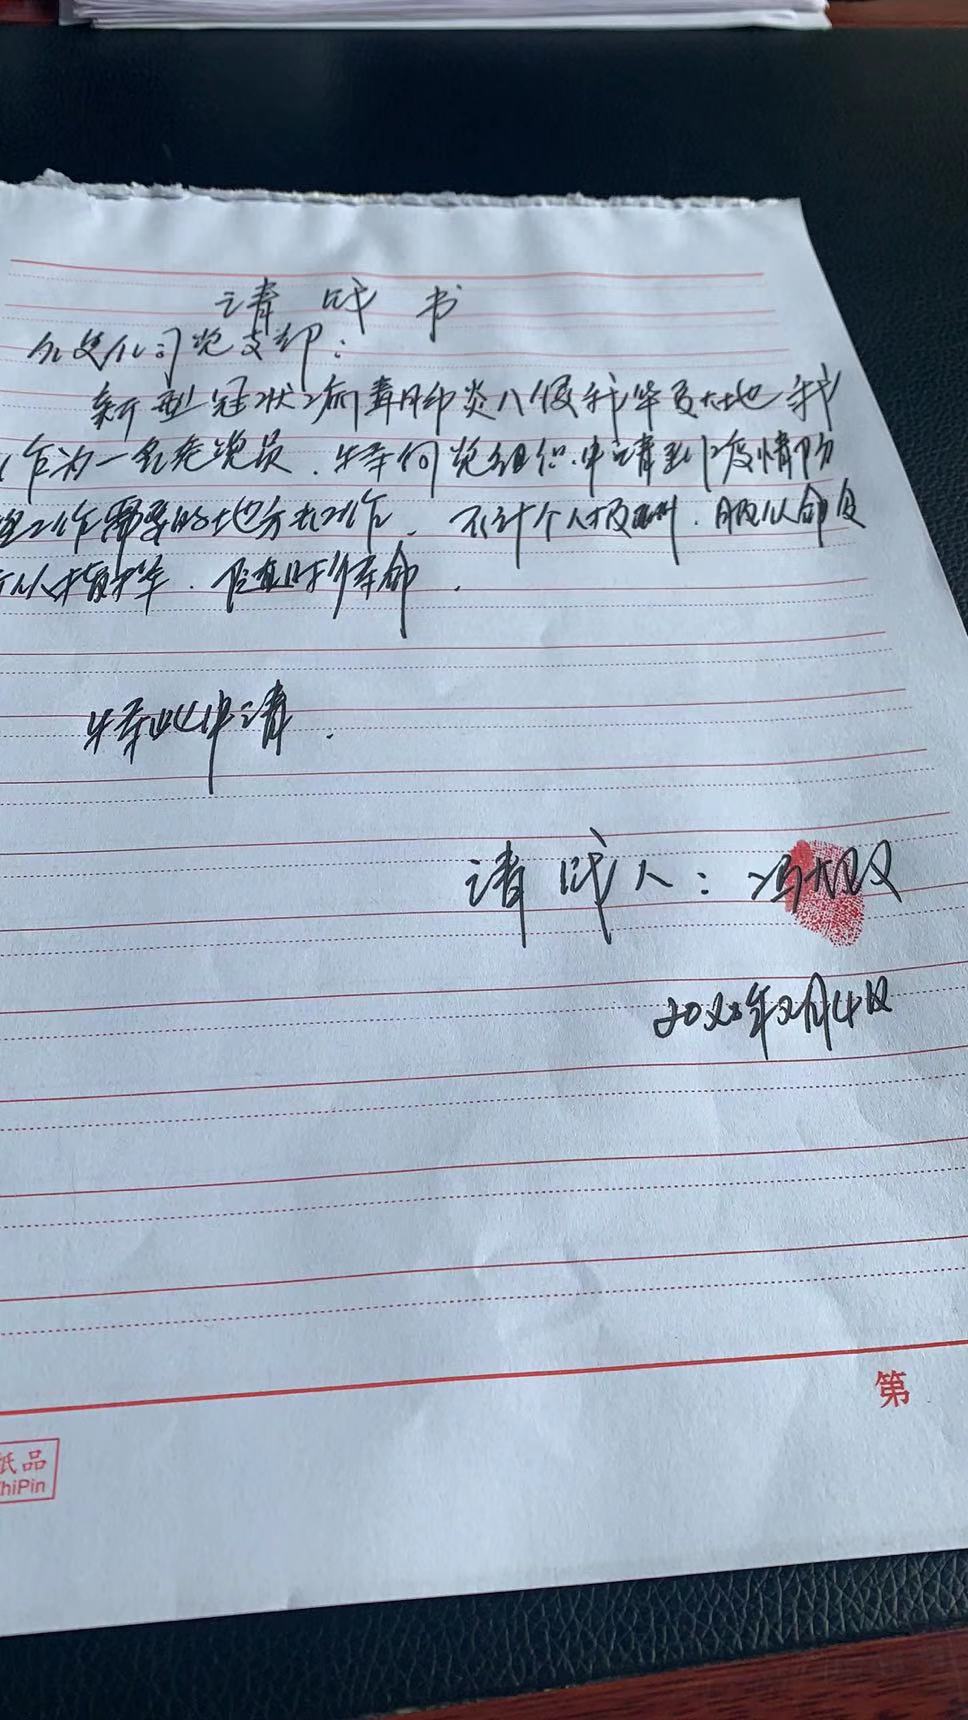 请战书
公司党支部:
新型冠状病毒肺炎入侵我华夏大地 我
作为一名老党员.特向党组织申请到疫情防
工作需要的地方去工作.不计个人报酬.服从命令
.随时待命.
特此申请.
请战人:冯大双
2020年2月4日
第
纸品
hiPin